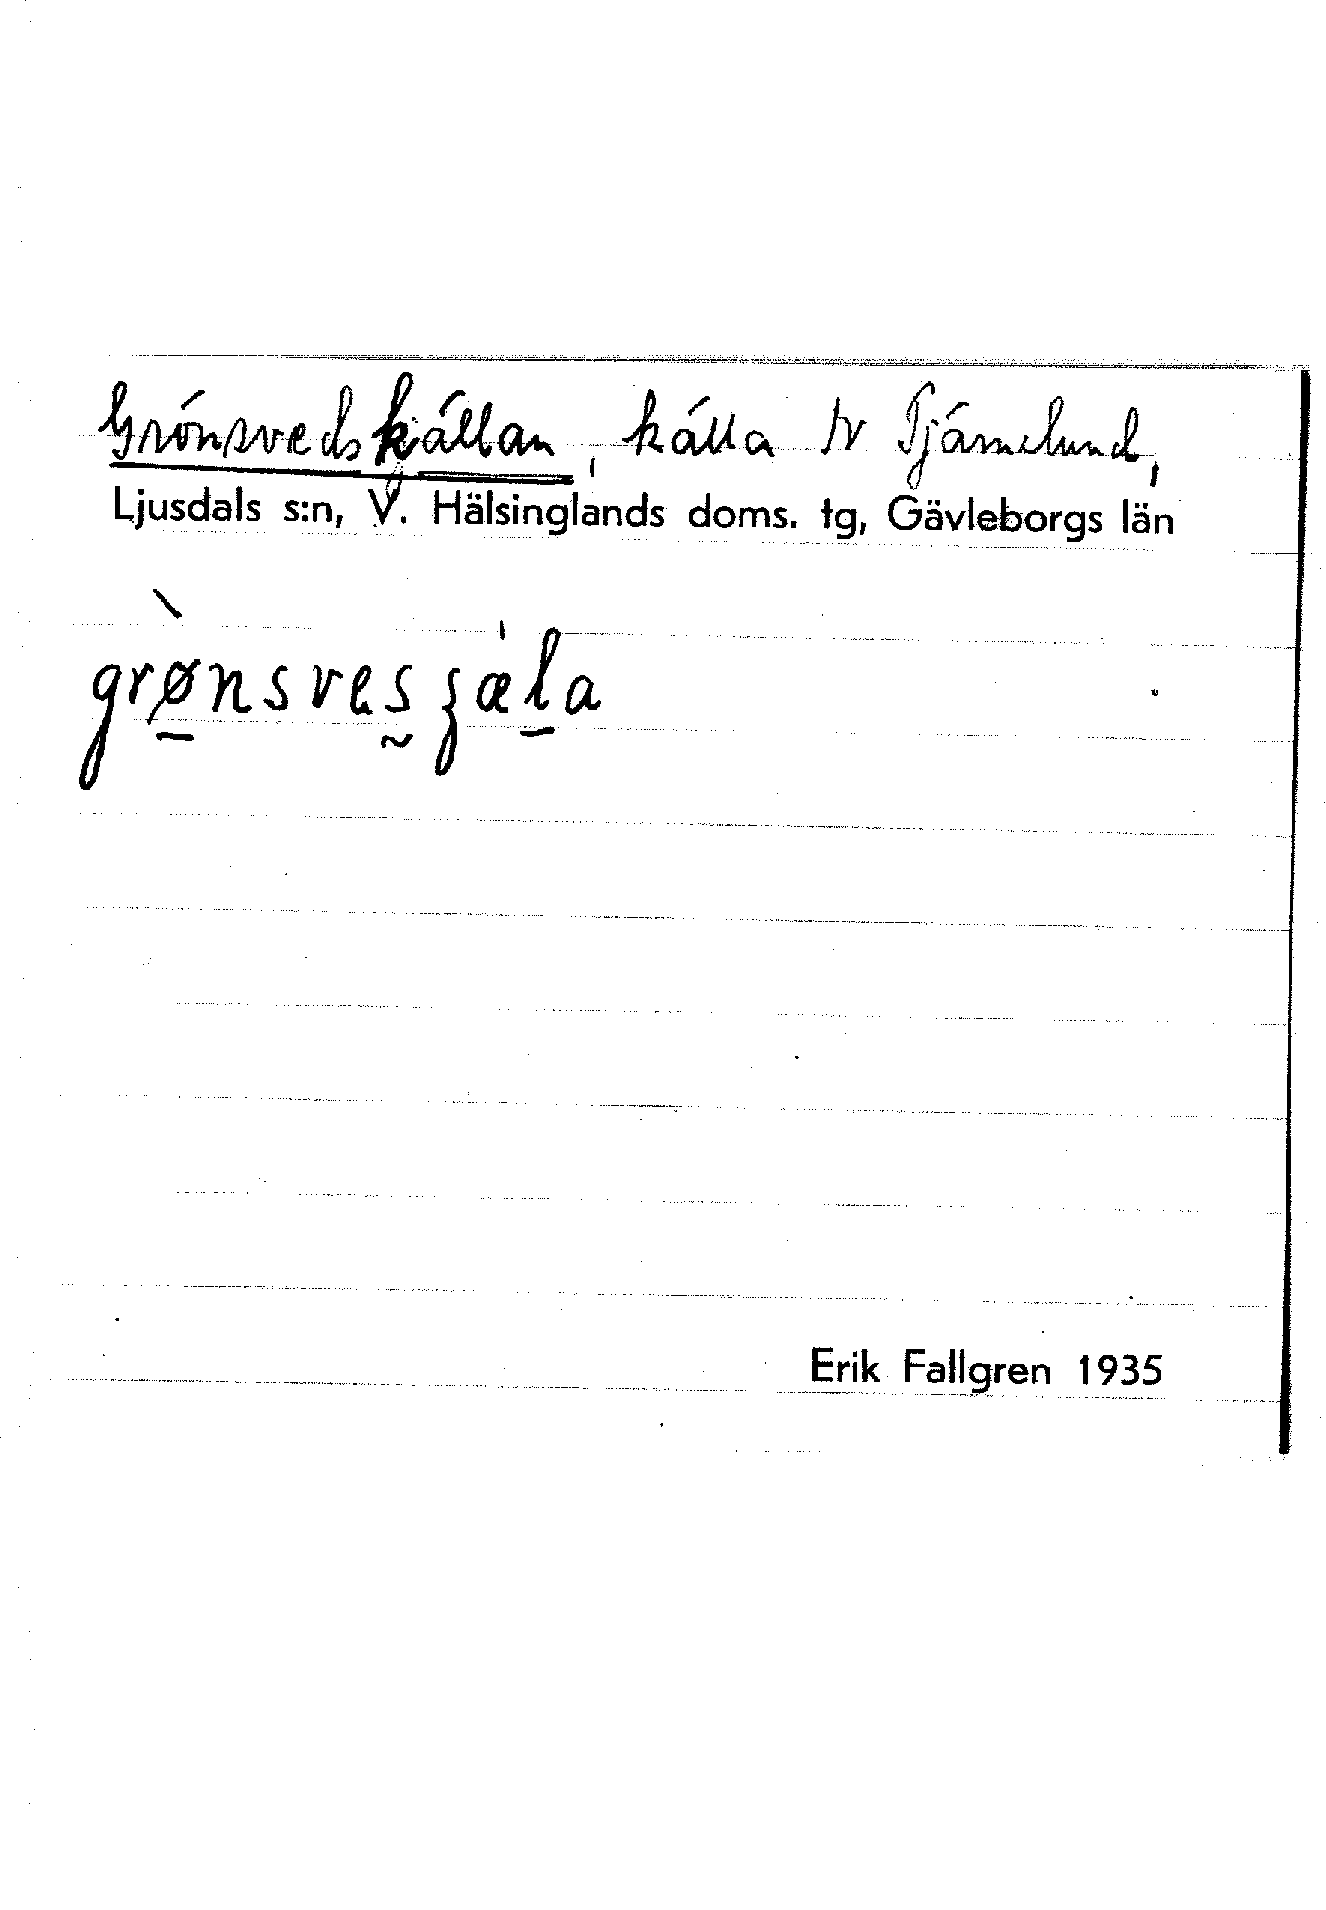 Grönsvedskällan, källa tv Tjärnelund,
Ljusdals s:n, V. Hälsinglands doms. tg, Gävleborgs län
grø̱nsves̰ʒæḻa
Erik Fallgren 1935